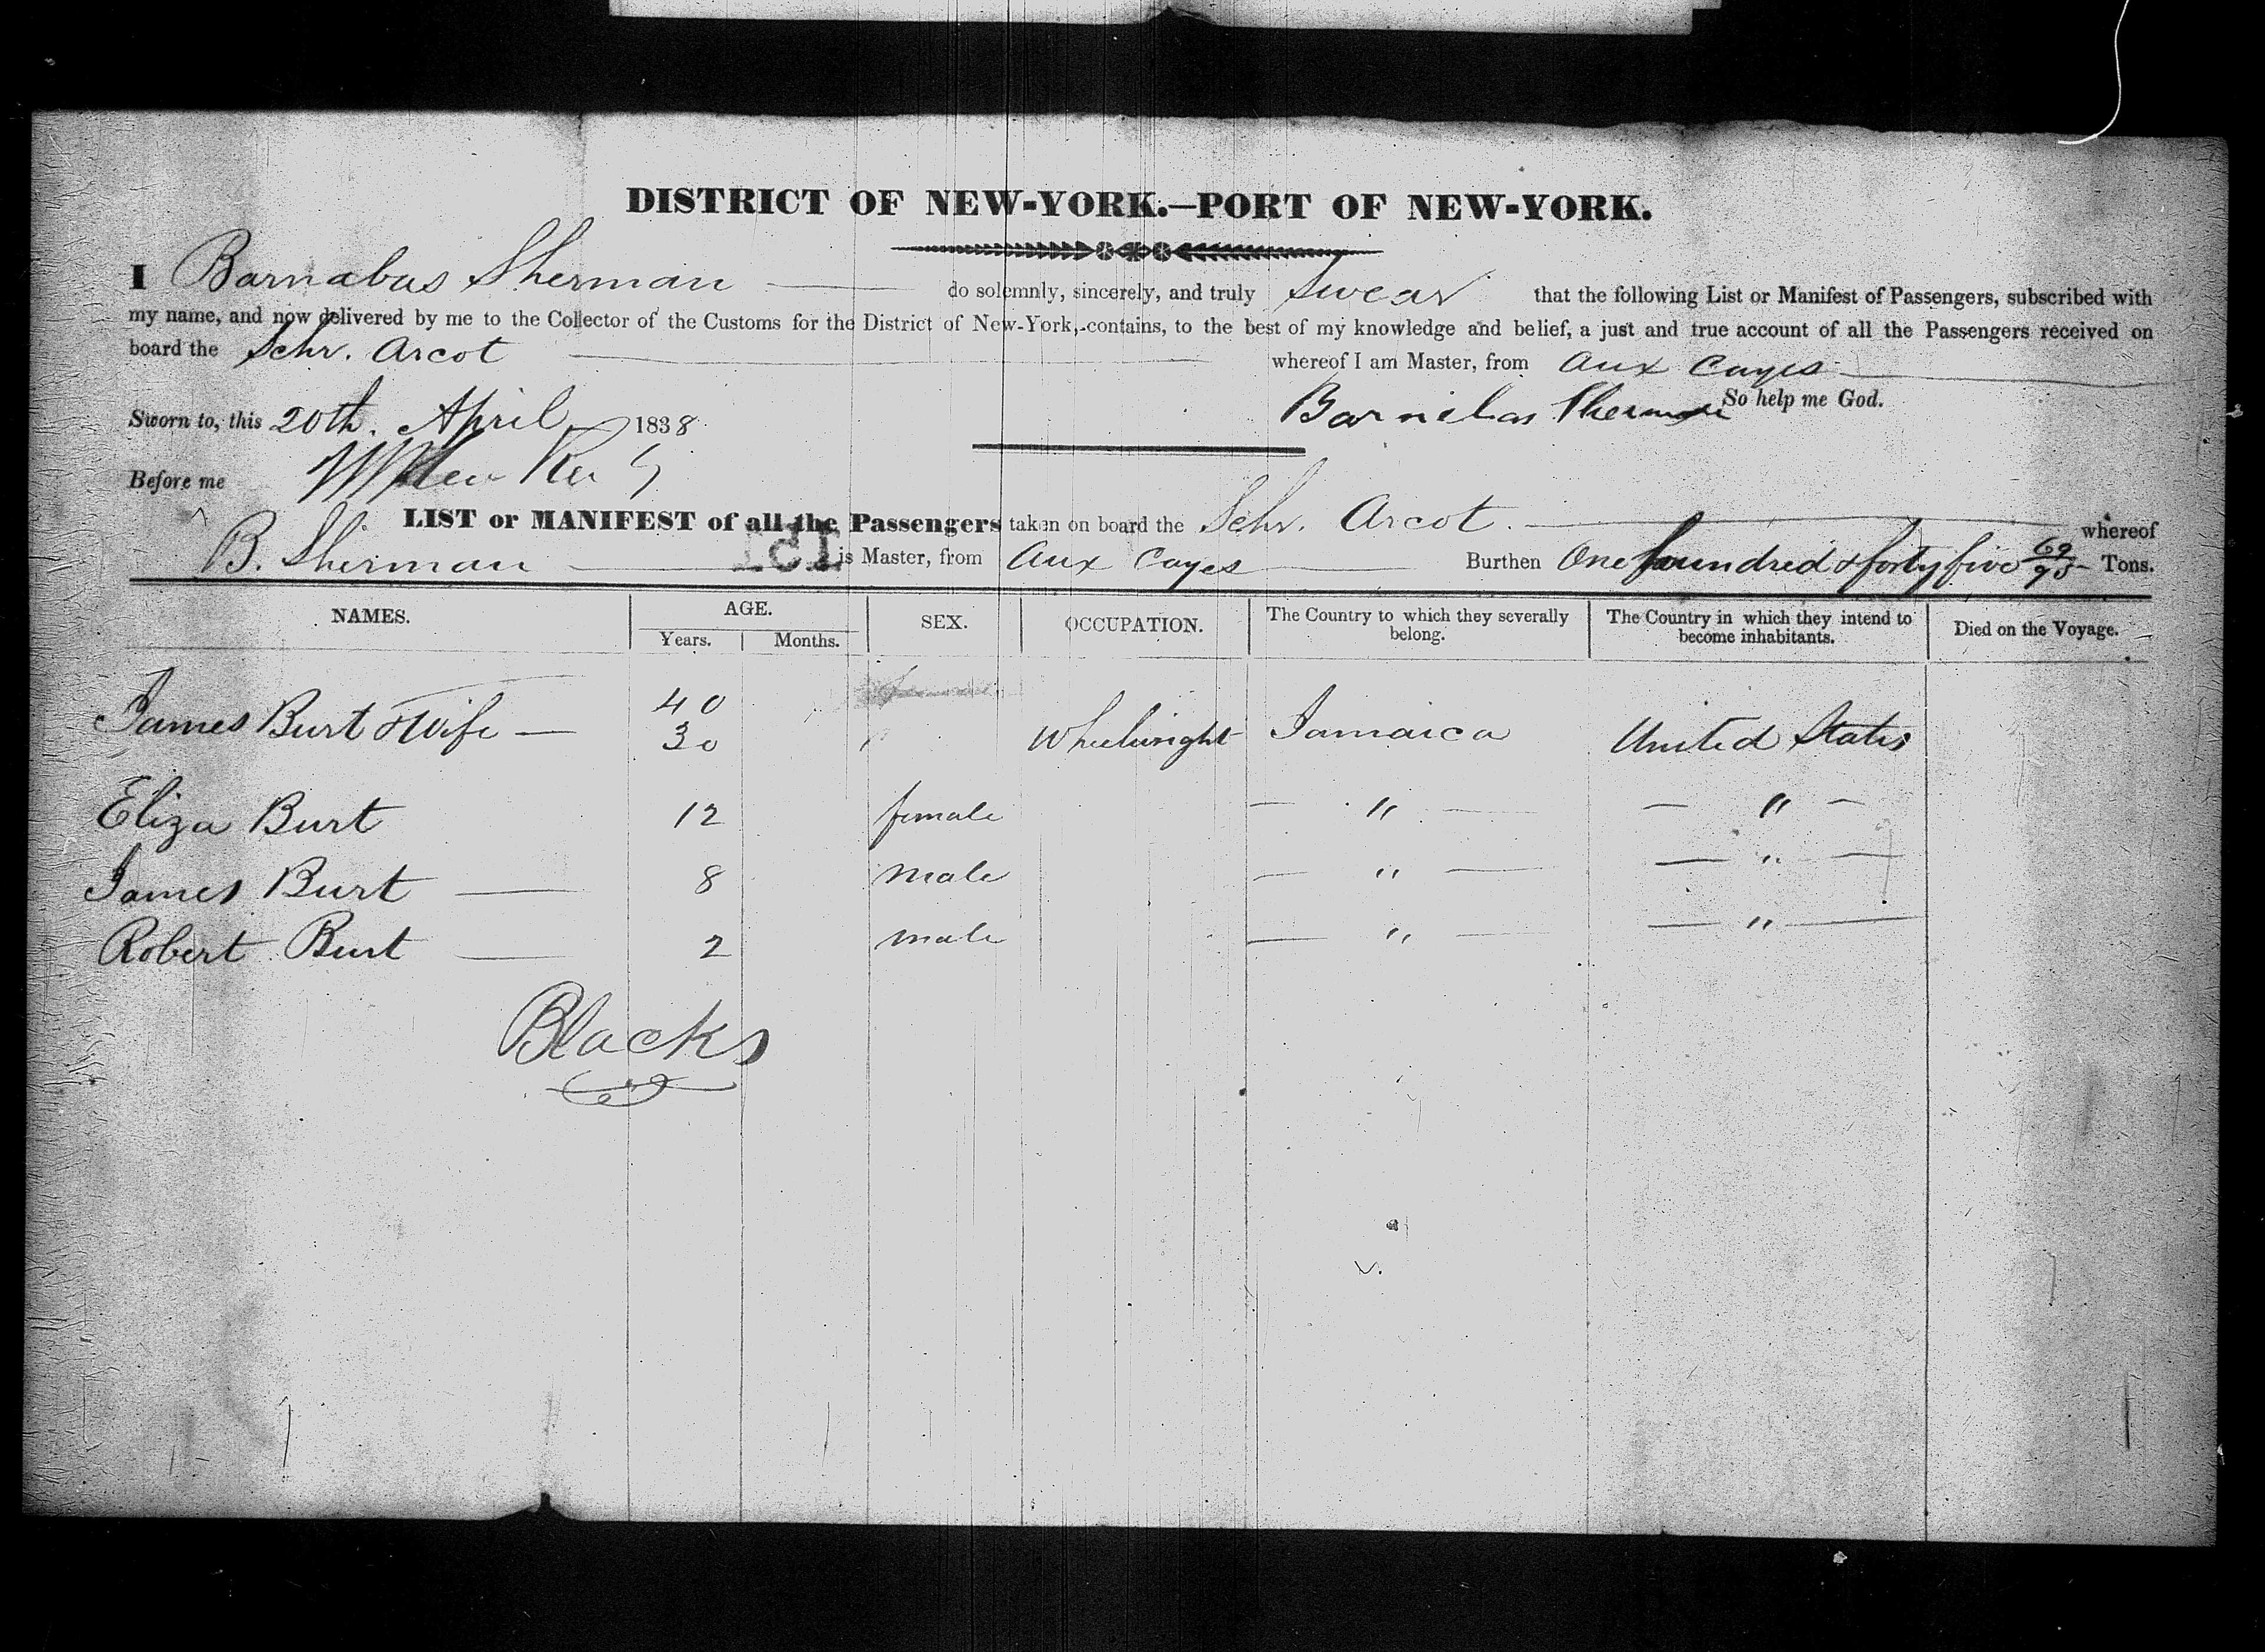 DISTRICT OF NEW-YORK.—PORT OF NEW-YORK.
I Barnabas Sherman do solemnly, sincerely, and truly swear that the following List or Manifest of Passengers, subscribed with
my name, and now delivered by me to the Collector of the Customs for the District of New-York, contains, to the best of my knowledge and belief, a just and true account of all the Passengers received on
board the Schr. Arcot whereof I am Master, from Aux Cayes
So help me God.
Sworn to, this 20th. April 1838 Barnabas Sherman
Before me
LIST or MANIFEST of all the Passengers taken on board the Schr. Arcot. whereof
B. Sherman is Master, from Aux Cayes Burthen One hundred & forty five 69/95 Tons.
NAMES. AGE. SEX. OCCUPATION. The Country to which they severally belong. The Country in which they intend to become inhabitants. Died on the Voyage.
Years. Months.
James Burt & Wife — 40 30 Wheelwright Jamaica United States
Eliza Burt 12 female — " — — " —
James Burt — 8 male — " — — " —
Robert Burt — 2 male — " — — " —
Blacks